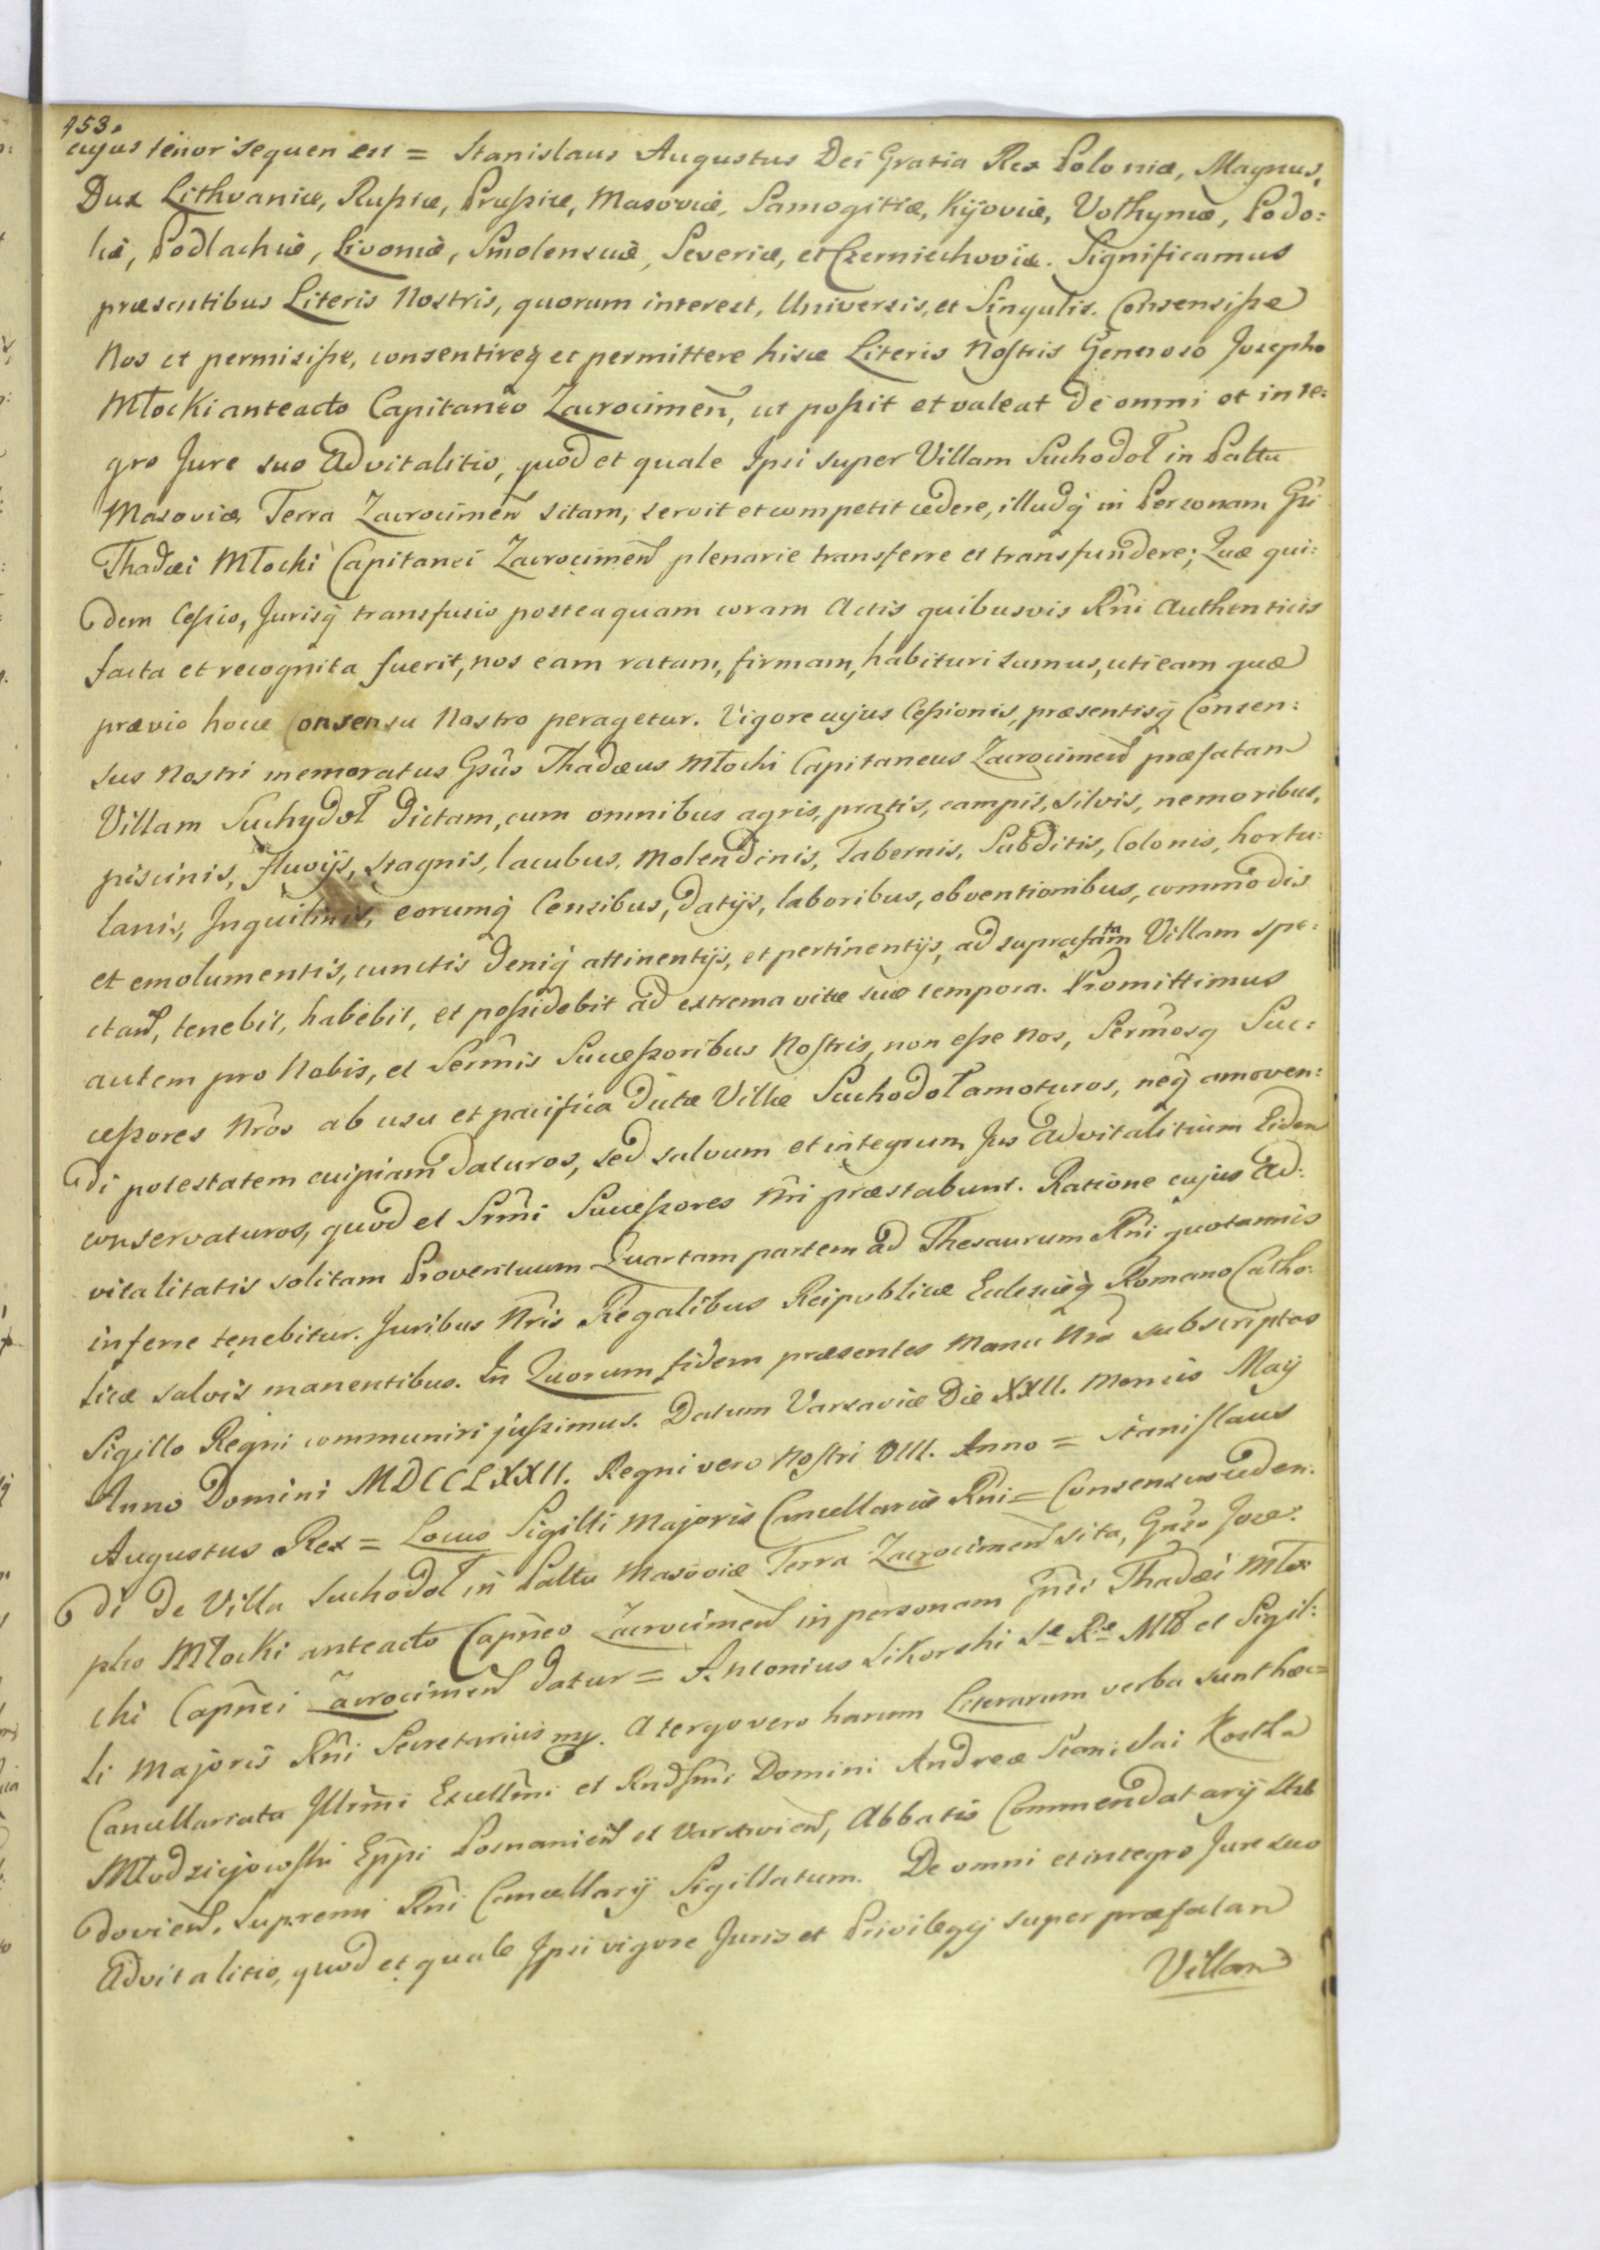 153.
cujus tenor sequen est = Stanislaus Augustus Dei Gratia Rex Poloniæ, Magnus,
Dux Lithvaniæ, Rußiæ, Prußiæ, Masoviæ, Samogitiæ, Kijoviæ, Volhyniæ, Podo:
liæ, Podlachiæ, Livoniæ, Smolensciæ, Severiæ, et Czerniechoviæ. Significamus
præsentibus Literis Nostris, quorum interest, Universis, et Singulis. Consensiße
Nos et permisiße, consentireq et permittere hisce Literis Nostris Generoso Josepho
Młocki anteacto Capitaneo Zacrocimeñ, ut poßit et valeat de omni et inte:
gro Jure suo Advitalitio, quod et quale Ipsi super Villam Suchodoł in Palttu
Masoviæ Terra Zacrocimeñ sitam, servit et competit cedere, illudq in Personam Gsi
Thadæi Młocki Capitanei Zacrocimeñ plenarie transferre et transfundere; Quæ qui:
dem Ceßio, Jurisq transfusio posteaquam coram Actis quibusvis Rñi Authenticis
facta et recognita fuerit, nos eam ratam, firmam, habituri sumus, uti eam quæ
prævio hocce Consensu Nostro peragetur. Vigore cujus Ceßionis, præsentisq Consen:
sus Nostri memoratus Gsus Thadæus Młocki Capitaneus Zacrocimeñ præfatam
Villam Suchydoł dictam, cum omnibus agris, pratis, campis, silvis, nemoribus,
piscinis, fluvijs, stagnis, lacubus, Molendinis, Tabernis, Subditis, Colonis, hortu:
lanis, Inquilinis, eorumq Censibus, datijs, laboribus, obventionibus, commodis
et emolumentis, cunctis deniq attinentijs, et pertinentijs, ad supraftam Villam spe:
ctañ, tenebit, habebit, et poßidebit ad extrema vitæ suæ tempora. Promittimus
autem pro Nobis, et Sermis Succeßoribus Nostris, non eße Nos, Sermosq Suc:
ceßores Nros ab usu et pacifica dictæ Villæ Suchodoł amoturos, neq amoven:
di potestatem cuipiam daturos, sed salvum et integrum Jus Advitalitium Eidem
conservaturos, quod et Srmi Succeßores Nri præstabunt. Ratione cujus Ad:
vitalitatis solitam Proventuum Quartam partem ad Thesaurum Rñi quotannis
inferre tenebitur. Juribus Nris Regalibus Reipublicæ Eclesiæq Romano Catho:
licæ salvis manentibus. In Quorum fidem præsentes Manu Nra subscriptas
Sigillo Regni communiri jußimus. Datum Varsaviæ Die XXII. Mensis Maij
Anno Domini MDCCLXXII. Regni vero Nostri VIII. Anno = Stanislaus
Augustus Rex = Locus Sigilli Majoris Cancellariæ Rñi = Consensus ceden:
di de Villa Suchodoł in Palttu Masoviæ Terra Zacrocimeñ sita, Gñso Jose:
pho Młocki anteacto Capñeo Zacrocimeñ in personam Gñsi Thadæi Mło:
cki Capñei Zacrocimeñ datur = Antonius Sikorski Sæ Ræ Mtt et Sigil:
li Majoris Rñi Secretarius mp. A tergo vero harum Literarum verba sunt hæc =
Cancellariatu Illrmi Excellmi et Rndsmi Domini Andreæ Stanislai Kostka
Młodziejowski Eppi Posnanieñ et Varsavieñ, Abbatis Commendatarij
dovieñ, Supremi Rñi Cancellarij Sigillatum. De omni et integro Jure suo
Advitalitio, quod et quale Ipsi vigore Juris et Privilegij super præfatam
Villam